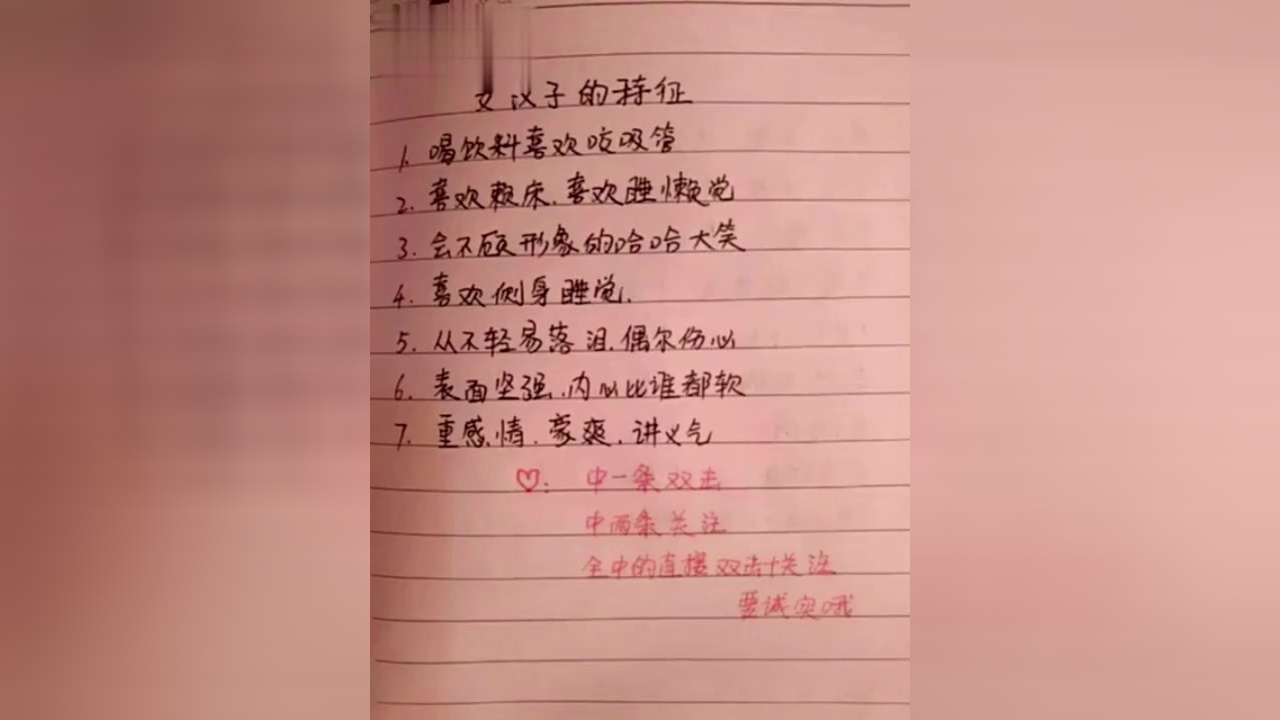 女汉子的特征
1. 喝饮料喜欢咬吸管
2. 喜欢赖床.喜欢睡懒觉
3. 会不顾形象的哈哈大笑
4. 喜欢侧身睡觉.
5. 从不轻易落泪.偶尔伤心
6. 表面坚强.内心比谁都软
7. 重感情.豪爽.讲义气
♡: 中一条双击
中两条关注
全中的直接双击+关注
要诚实哦